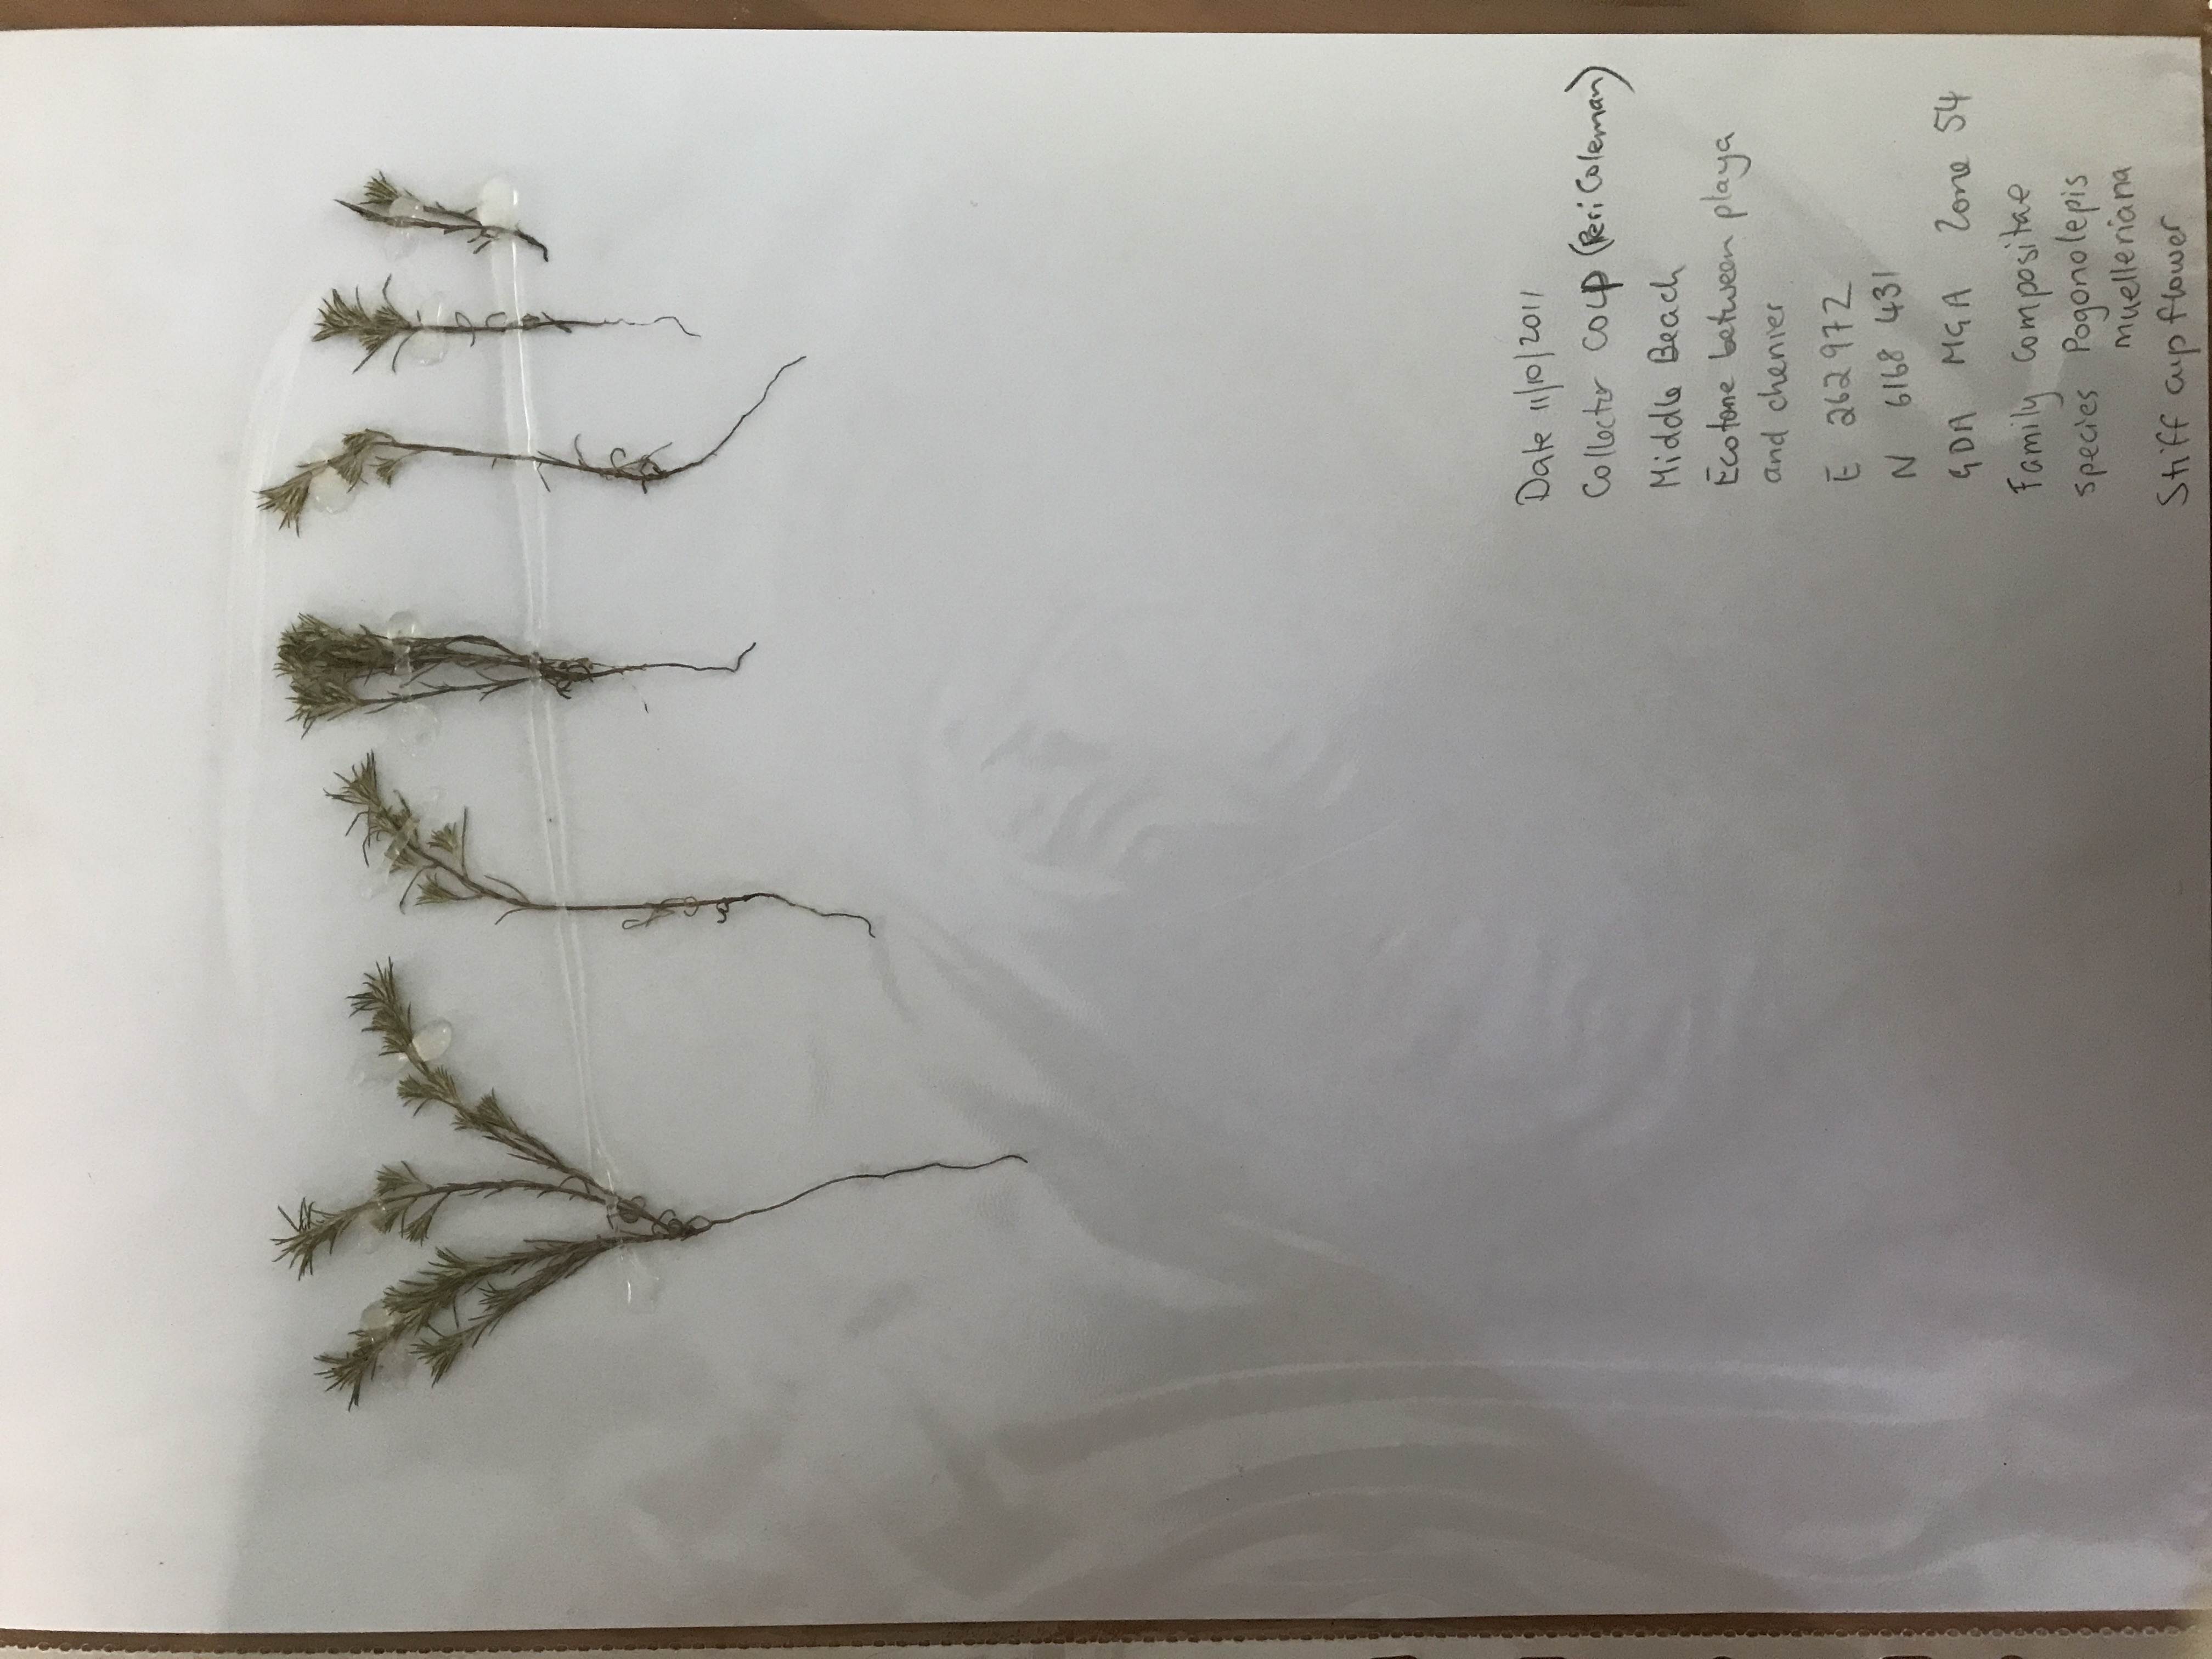 Date 11/10/2011
Collector COLP (Peri Coleman)
Middle Beach
Ecotone between playa
and chenier
E 262972
N 6168 431
GDA MGA Zone 54
Family Compositae
species Pogonolepis
muelleriana
Stiff cup flower